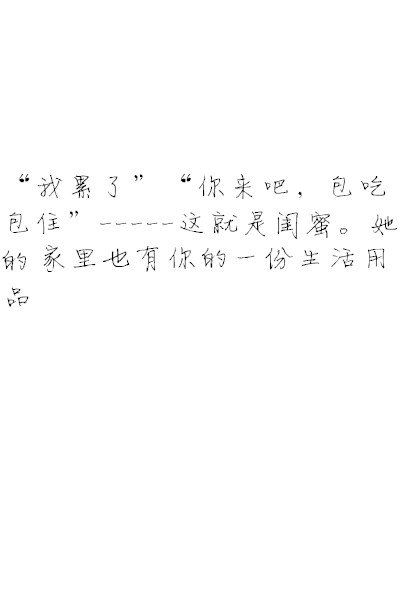 “我累了”“你来吧，包吃
包住”-----这就是闺蜜。她
的家里也有你的一份生活用
品